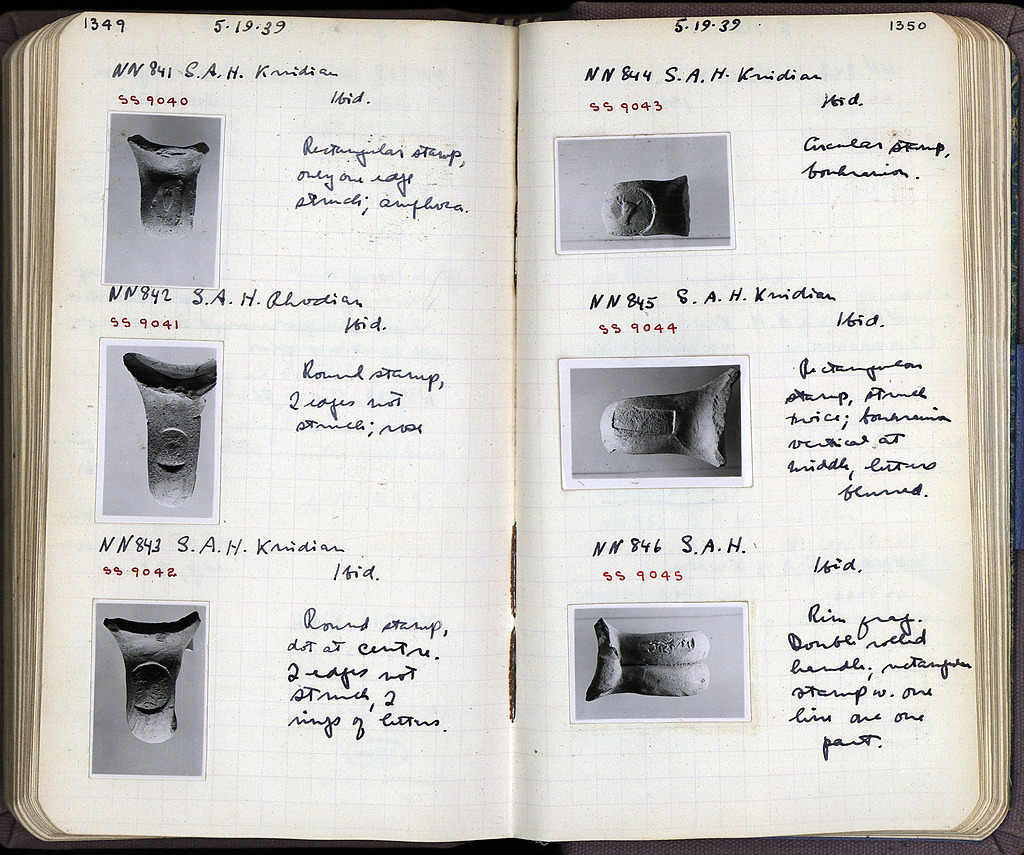 1349 5·19·39
NN 841 S.A.H. Knidian
SS 9040 Ibid.
Rectangular stamp,
only one edge
struck; amphora.
NN 842 S.A.H. Rhodian
SS 9041 Ibid.
Round stamp,
2 edges not
struck; rose
NN 843 S.A.H. Knidian
SS 9042 Ibid.
Round stamp,
dot at centre.
2 edges not
struck, 2
rings of letters.
5·19·39 1350
NN 844 S.A.H. Knidian
SS 9043 Ibid.
Circular stamp,
boukranion.
NN 845 S.A.H. Knidian
SS 9044 Ibid.
Rectangular
stamp, struck
twice; boukranion
vertical at
middle, letters
blurred.
NN 846 S.A.H.
SS 9045 Ibid.
Rim frag.
Double rolled
handle; rectangular
stamp w. one
line on one
part.